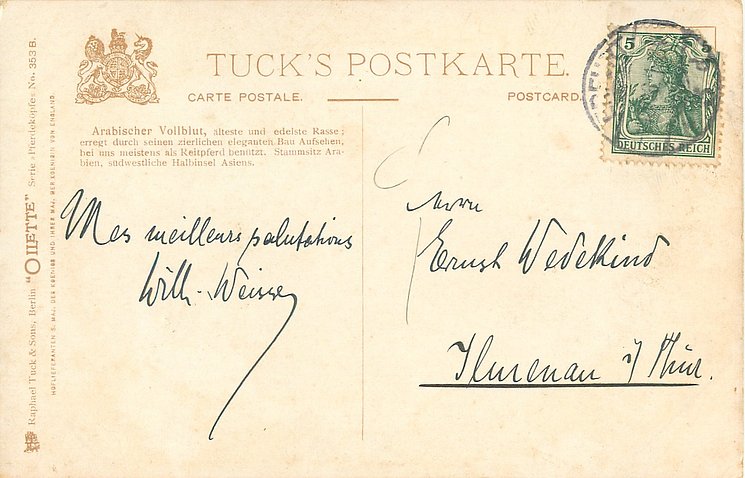 TUCK'S POSTKARTE.
CARTE POSTALE.
POSTCARD.
5 5
DEUTSCHES REICH
Arabischer Vollblut, älteste und edelste Rasse;
erregt durch seinen zierlichen eleganten Bau Aufsehen,
bei uns meistens als Reitpferd benützt. Stammsitz Ara-
bien, südwestliche Halbinsel Asiens.
Mes meilleurs salutations
Willi. Weisse
Herrn
Ernst Wedekind
Ilmenau i/ Thür.
Raphael Tuck & Sons, Berlin "OILETTE" Serie „Pferdeköpfe" No. 353 B.
HOFLIEFERANTEN S. MAJ. DER KOENIGS UND IHRER MAJ. DER KOENIGIN VON ENGLAND.